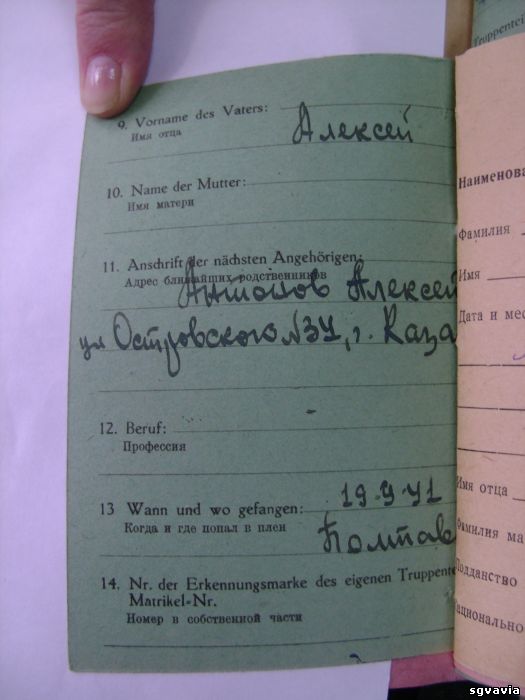 9. Vorname des Vaters:
Имя отца
Алексей
10. Name der Mutter:
Имя матери
11. Anschrift der nächsten Angehörigen:
Адрес ближайших родственников
Антонов Алексей
ул Островского №34, г. Каза
12. Beruf:
Профессия
13 Wann und wo gefangen:
19-9-41
Когда и где попал в плен
14. Nr. der Erkennungsmarke des eigenen Truppente
Matrikel-Nr.
Номер в собственной части
Truppentei
Наименова
Фамилия
Имя
Дата и мес
Имя отца
Фамилия ма
Подданство
Национально
sgvavia